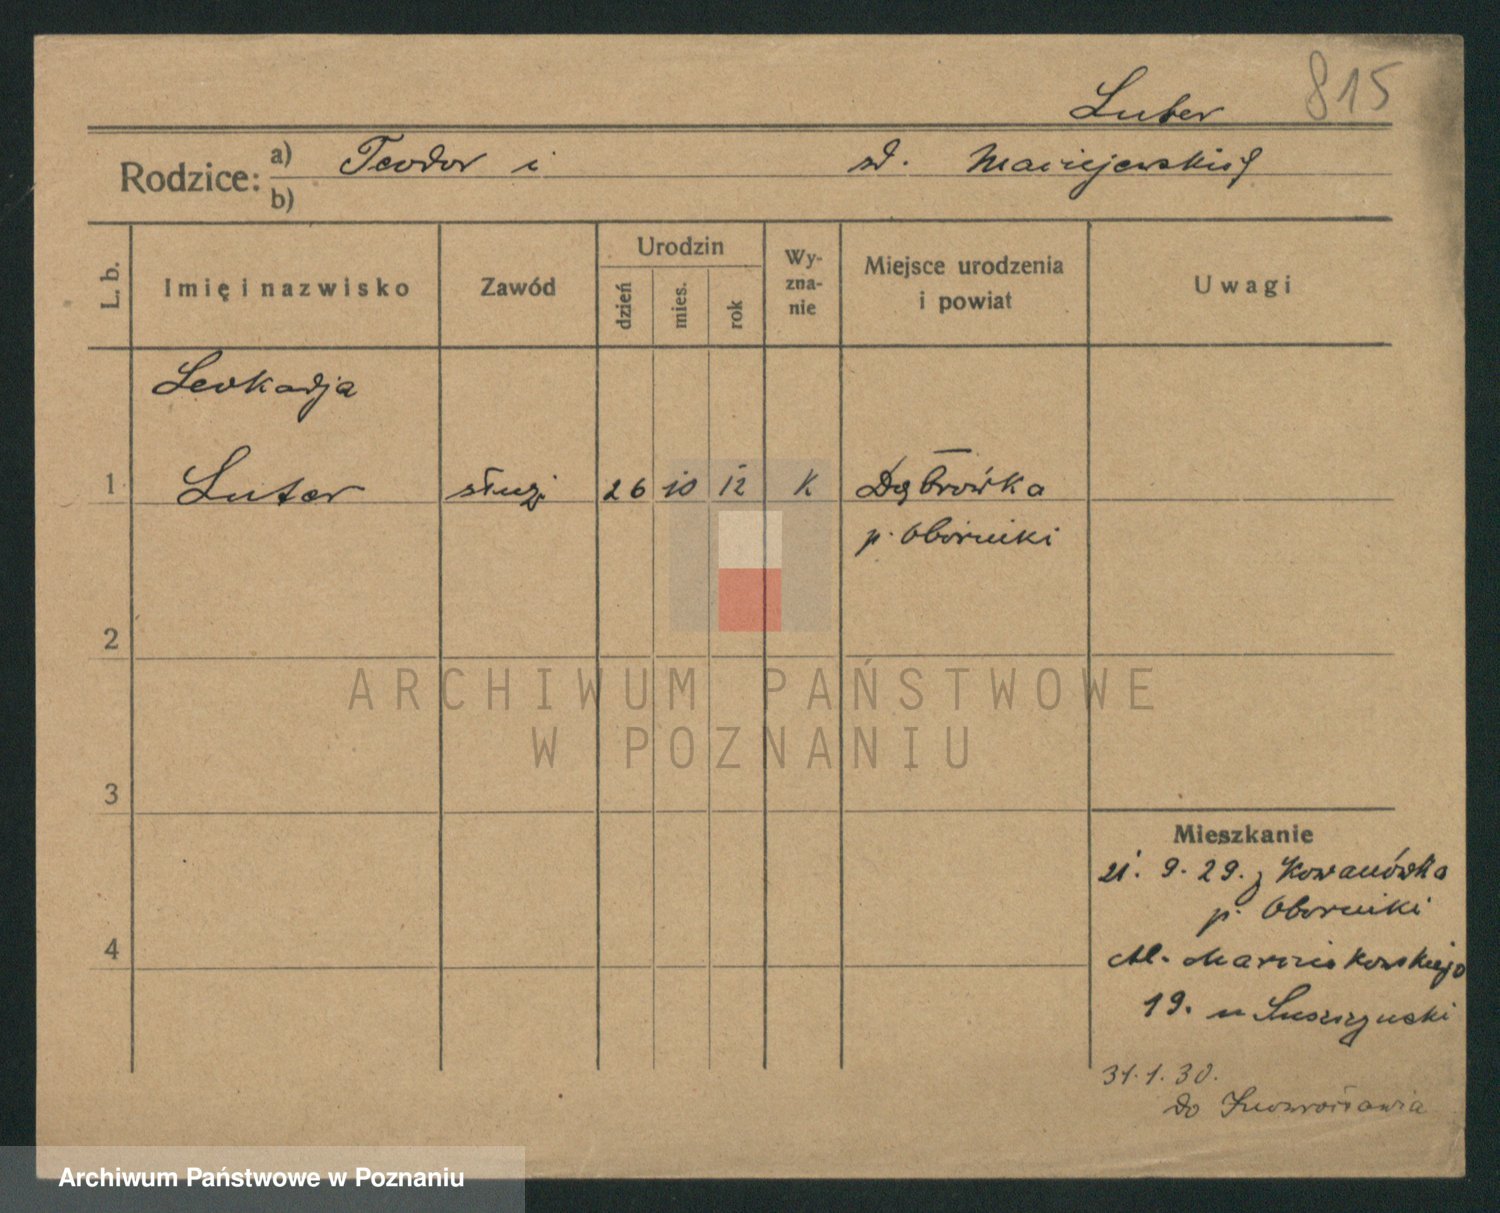 Luter
815
Rodzice:
a) Teodor i zd. Maciejewskich
b)
L. b.
Imię i nazwisko
Zawód
Urodzin
dzień
mies.
rok
Wy-
zna-
nie
Miejsce urodzenia
i powiat
Uwagi
Leokadja
1 Luter służ. 26 10 12 K Dąbrówka
p. Oborniki
2
3
4
Mieszkanie
21. 9. 29. z Kowanówka
p. Oborniki
Al. Marcinkowskiego
19. u
31. 1. 30.
do Inowrocławia
ARCHIWUM PAŃSTWOWE
W POZNANIU
Archiwum Państwowe w Poznaniu